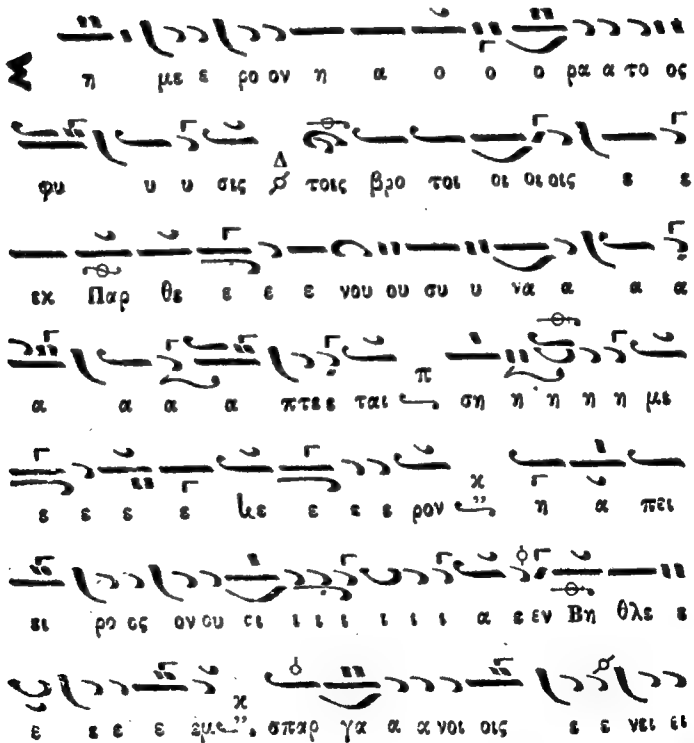 Σ η με ε ρο ον η α ο ο ο ρα α το ος
φυ υ υ σις Δ τοις βρο τοι οι οι οις ε ε
εκ Παρ θε ε ε ε νου ου συ υ να α α α
α α α α πτεε ται π ση η η η η με
ε ε ε ε κε ε ε ε ρον κ η α πει
ει ρο ος ον ου σι ι ι ι ι ι ι α ε εν Βη θλε ε
ε ε ε ε εμ κ σπαρ γα α α νοι οις ε ε νει ει